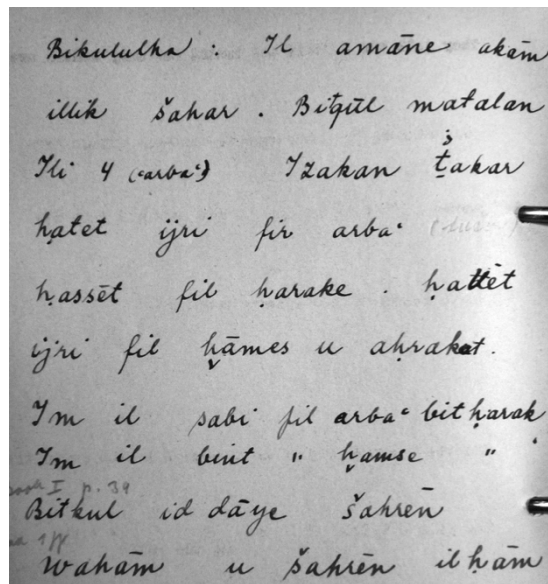 Bikululha : Il amāne akām
illik šahar . Bitqūl matalan
Ili 4 (arbaʿ) Izakan ṯakar
ḥatet ijri fir arbaʿ
ḥassēt fil ḥarake . ḥattēt
ijri fil ḫāmes u aḥrakat.
Im il sabi fil arbaʿ bitḥarak
Im il bint " ḫamse " .
book I p. 39
Bitkul id dāye šahrēn
waḥām u šahrēn il ḥām